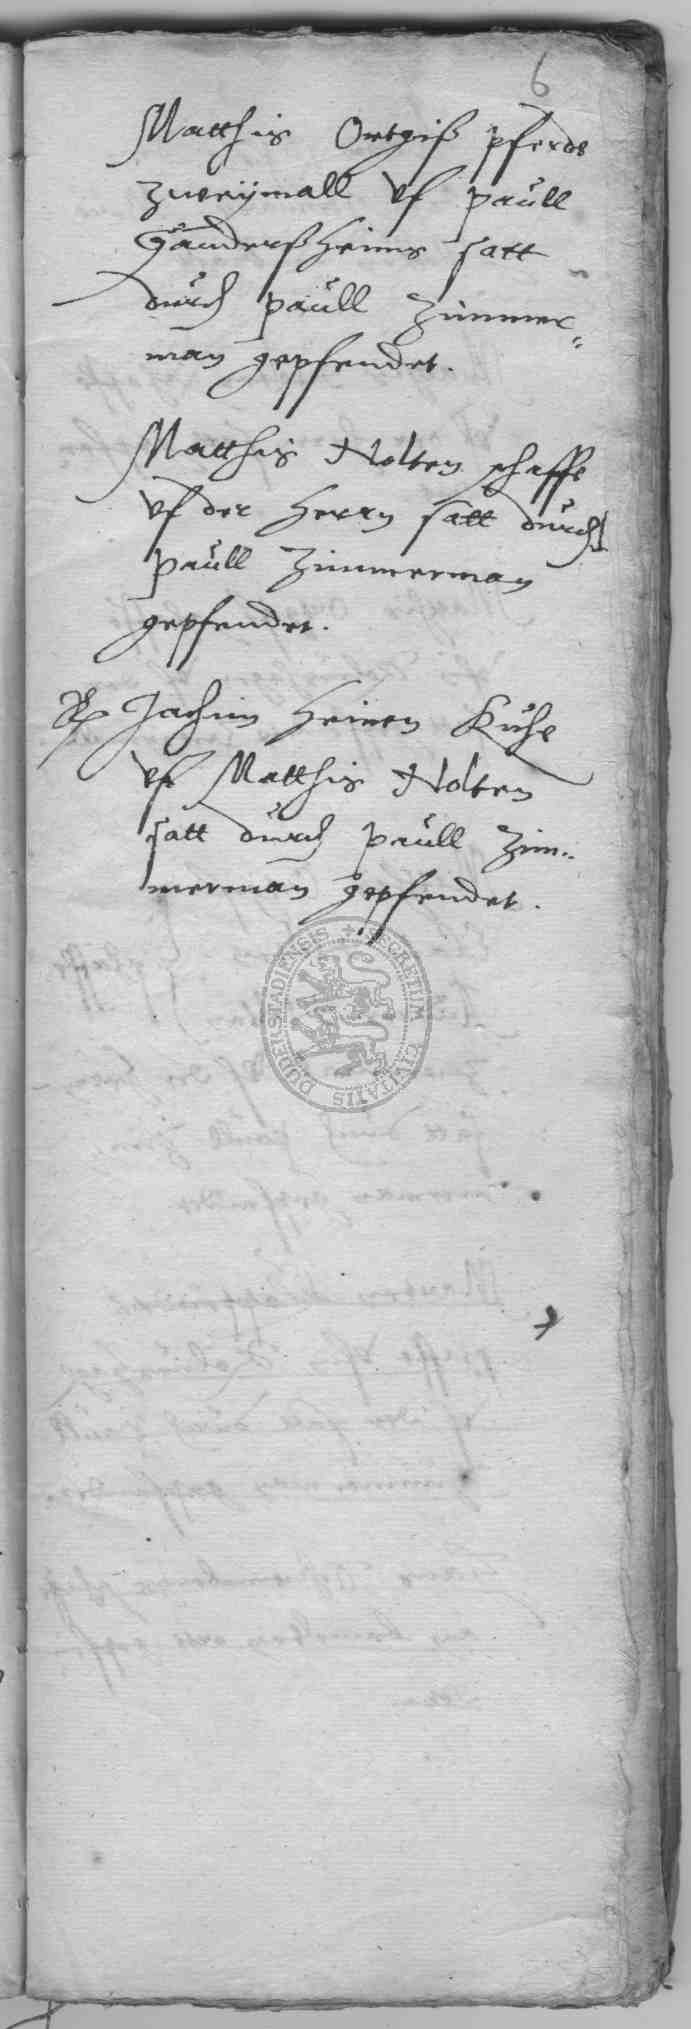 6
Matthis Ortgiß pferde
zweÿmall vf paull
Ganderßheims satt
durch paull Zimmer¬
man gepfendet.
Matthis Nolten schaffe
vf der Herrn satt durch
paull Zimmerman
gepfendet.
Jachim Heinen Kuhe
vf Matthis Nolten
satt durch paull Zim¬
merman gepfendet.
SECRETUM CIVITATIS DUDERSTADIENSIS